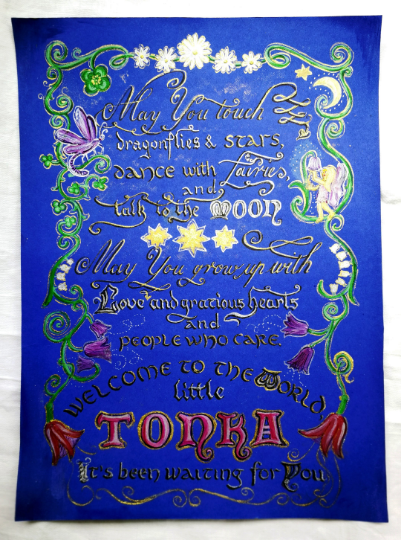 May You touch
dragonflies & stars,
dance with Fairies,
and
talk to the MOON
May You grow up with
Love and gracious hearts
and
people who care.
WELCOME TO THE WORLD,
little
TONKA
It's been waiting for You